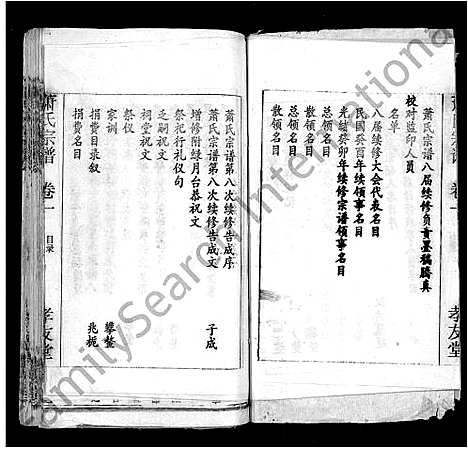 萧氏宗谱八届续修负责墨稿腾真
校对监印人员
名单
八届续修大会代表名目
民國癸酉年续修领事名目
光绪癸卯年续修宗谱领事名目
总领名目
散领名目
总领名目
散领名目
孝友堂
萧氏宗谱第八次续修告成序 子成
萧氏宗谱第八次续修告成文
增修附绿月台恭祝文 攀鳌
祭祀行礼仪句 兆枙
乏嗣祝文
祠堂祝文
祭仪
家训
捐费目录叙
捐费名目
萧氏宗谱 卷一 目录 孝友堂
FamilySearch International